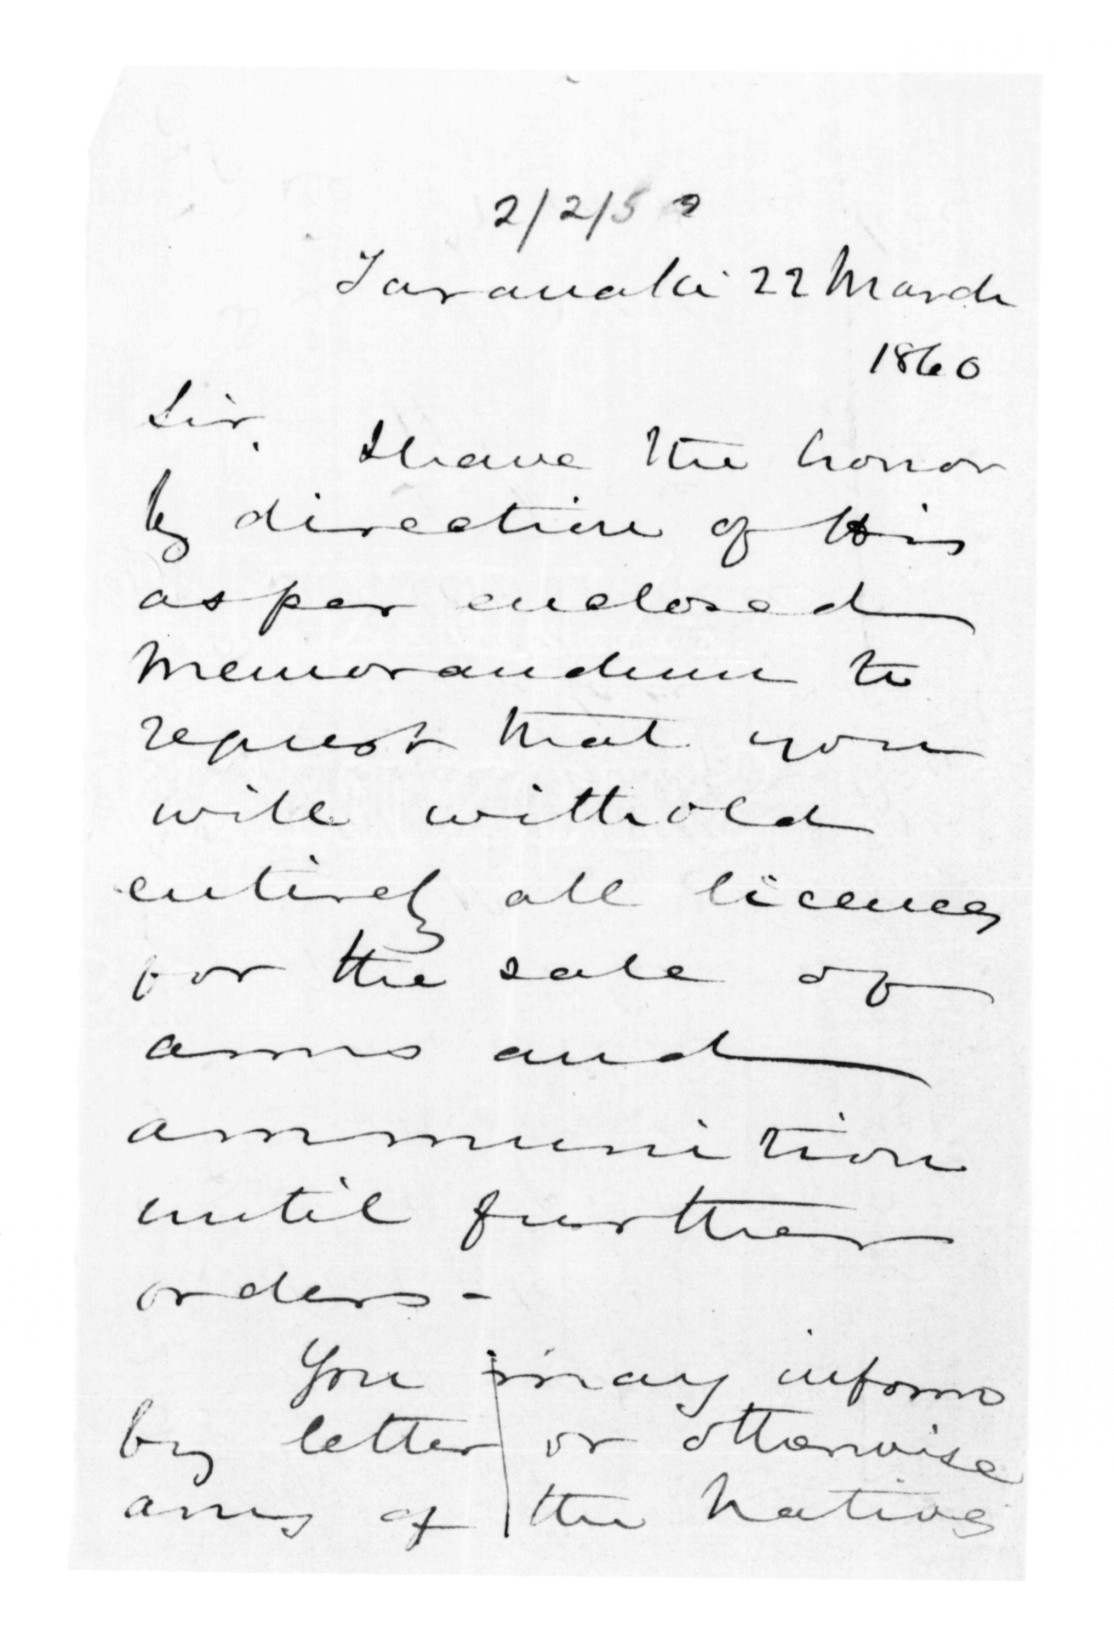 2/2/5
Taranaki 22 March
1860
Sir.
I have the honor
by direction of His
as per enclosed
Memorandum to
request that you
will withold
entirely all licences
for the sale of
arms and
ammunition
until further
orders -
You may inform
by letter or otherwise
any of the Natives